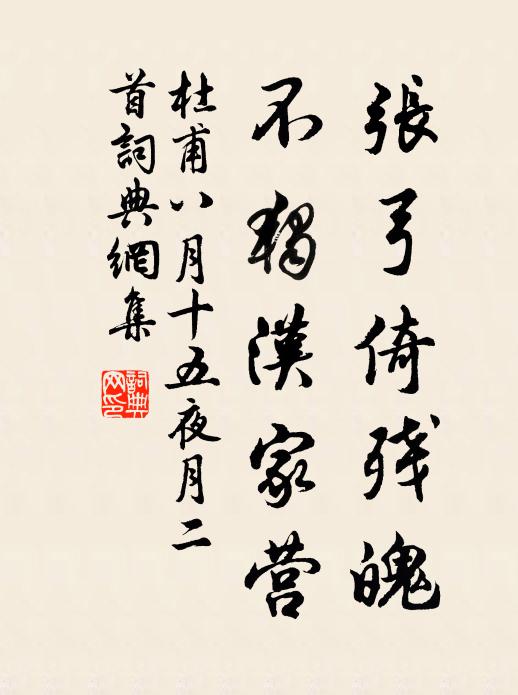 張弓倚残魄
不獨漢家营
杜甫八月十五夜月二
首詞典網集
詞典
网印